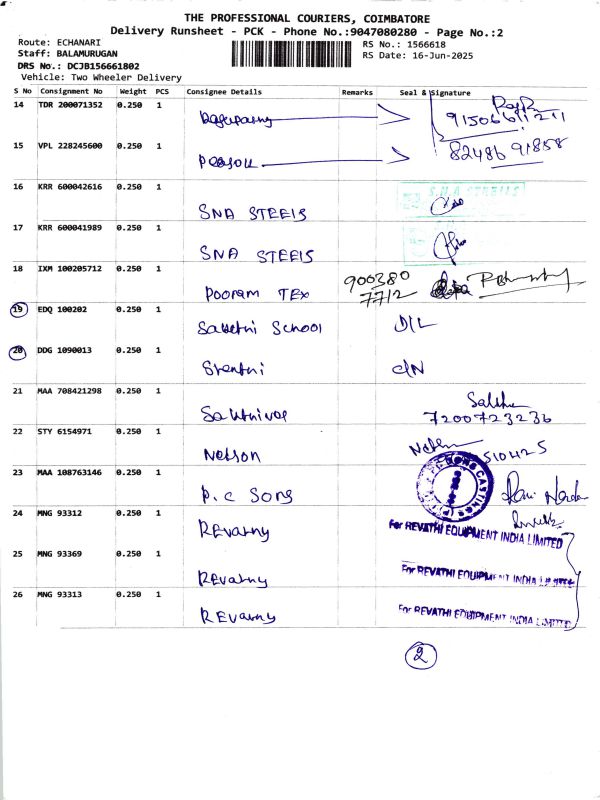 THE PROFESSIONAL COURIERS, COIMBATORE
Delivery Runsheet - PCK - Phone No.:9047080280 - Page No.:2
Route: ECHANARI
RS No.: 1566618
Staff: BALAMURUGAN
RS Date: 16-Jun-2025
DRS No.: DCJB156661802
Vehicle: Two Wheeler Delivery
S No Consignment No Weight PCS Consignee Details Remarks Seal & Signature
14 TDR 200071352 0.250 1
91506 11211
15 VPL 228245600 0.250 1
82486 91858
16 KRR 600042616 0.250 1 SNA STEEIS S.N.A STEELS
17 KRR 600041989 0.250 1 SNA STEEIS
18 IXM 100205712 0.250 1 Pooram TEX 900380
7712
19 EDQ 100202 0.250 1 Sakthi School D/L
20 DDG 1090013 0.250 1 C/N
21 MAA 708421298 0.250 1 Sakthivel
7200723236
22 STY 6154971 0.250 1 Nelson 510425
23 MAA 108763146 0.250 1 P. C Sons
24 MNG 93312 0.250 1 REvathy For REVATHI EQUIPMENT INDIA LIMITED
25 MNG 93369 0.250 1 REvathy For REVATHI EQUIPMENT INDIA LIMITED
26 MNG 93313 0.250 1 REvathy For REVATHI EQUIPMENT INDIA LIMITED
2